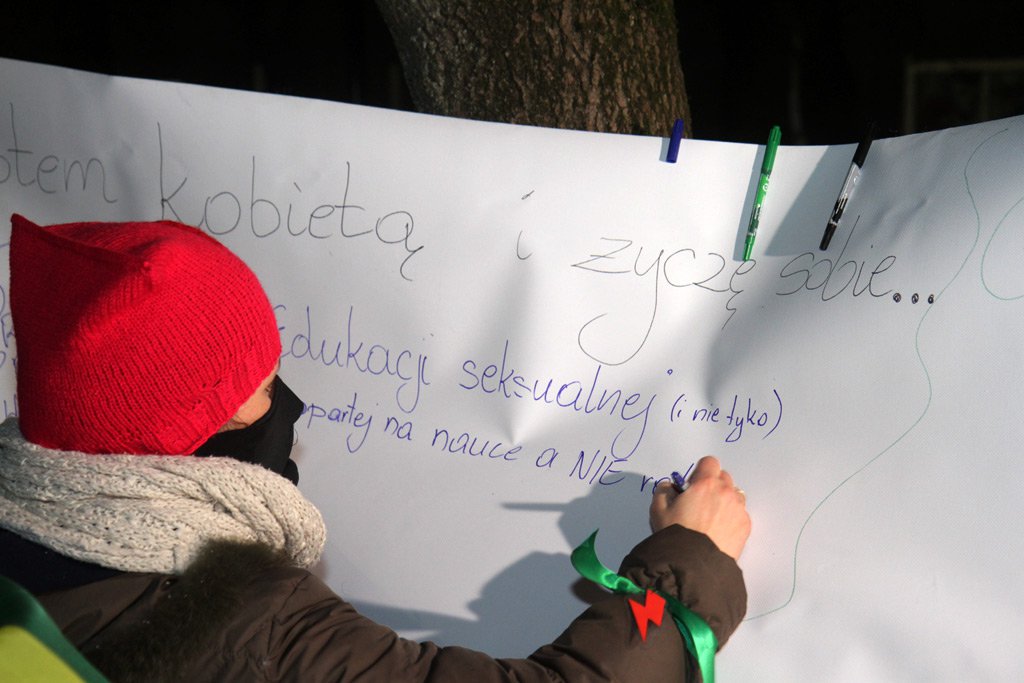 kobietą i życzę sobie...
Edukacji seksualnej (i nie tyko)
opartej na nauce a NIE